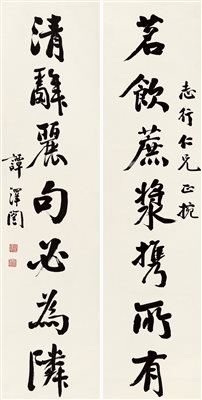 志行仁兄正捥
茗飲蔗漿携所有
清辭麗句必為隣
譚澤闓